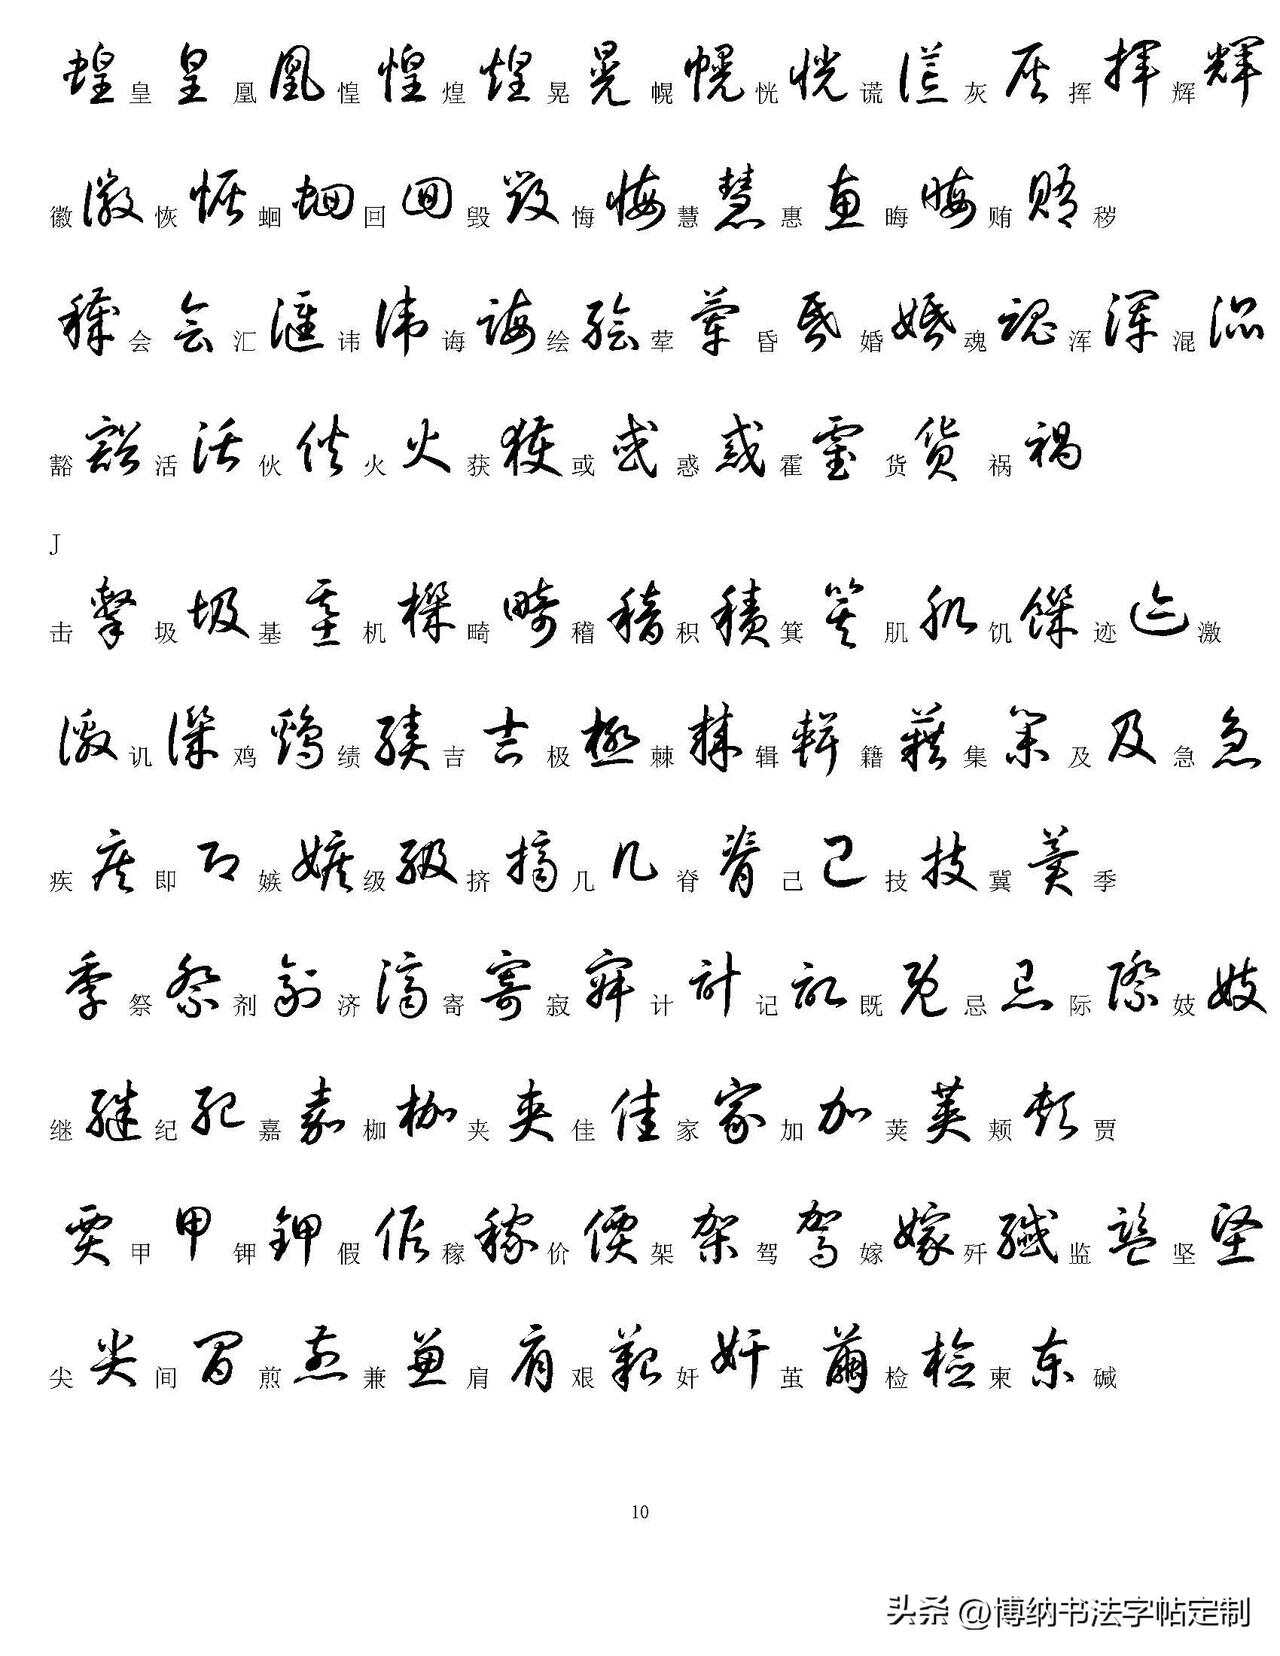 蝗 皇 皇 凰 凰 惶 惶 煌 煌 晃 晃 幌 幌 恍 恍 谎 谎 灰 灰 挥 揮 辉 輝
徽 徽 恢 恢 蛔 蛔 回 回 毁 毁 悔 悔 慧 慧 惠 惠 晦 晦 贿 賄 秽
穢 会 会 汇 滙 讳 讳 诲 诲 绘 绘 荤 葷 昏 昏 婚 婚 魂 魂 浑 渾 混 混
豁 豁 活 活 伙 伙 火 火 获 獲 或 或 惑 惑 霍 霍 货 貨 祸 禍
J
击 擊 圾 圾 基 基 机 機 畸 畸 稽 稽 积 積 箕 箕 肌 肌 饥 饑 迹 迹 激
激 讥 譏 鸡 鷄 绩 績 吉 吉 极 極 棘 棘 辑 輯 籍 籍 集 集 及 及 急 急
疾 疾 即 即 嫉 嫉 级 級 挤 擠 几 几 脊 脊 己 己 技 技 冀 冀 季
季 祭 祭 剂 劑 济 濟 寄 寄 寂 寂 计 計 记 記 既 既 忌 忌 际 際 妓 妓
继 継 纪 紀 嘉 嘉 枷 枷 夹 夾 佳 佳 家 家 加 加 荚 莢 颊 頰 贾
賈 甲 甲 钾 鉀 假 假 稼 稼 价 價 架 架 驾 駕 嫁 嫁 歼 殲 监 監 坚 坚
尖 尖 间 間 煎 煎 兼 兼 肩 肩 艰 艱 奸 奸 茧 繭 检 檢 柬 柬 碱
10
头条 @博纳书法字帖定制